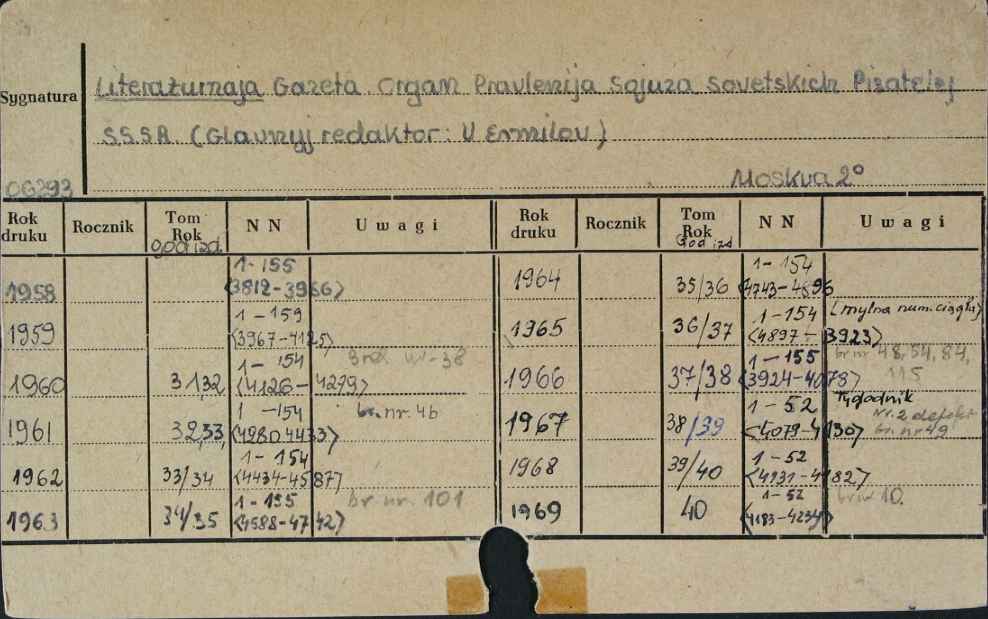 Sygnatura
Literaturnaja Gazeta. Organ Pravlenija Sojuza Sovetskich Pisatelej
SSSR. (Glavnyj redaktor: V Ermilov)
OG293
Moskva 2°
Rok druku Rocznik Tom Rok god izd. NN Uwagi Rok druku Rocznik Tom Rok God izd NN Uwagi
1958 1-155 <3812-3966>
1959 1-159 <3967-4125>
1960 31,32 1-154 <4126-4299> brak nr-38
1961 32,33, 1-154 <4280 4433> br. nr. 46
1962 33/34 1-154 <4434-4587>
1963 34/35 1-155 <4588-4742> br. nr. 101
1964 35/36 1-154 <4743-4896
1965 36/37 1-154 <4897-3923> (mylna num. ciągła)
1966 37/38 1-155 <3924-4078> br nr 48, 54, 84, 115
1967 38/39 1-52 <4079-4130> Tygodnik Nr. 2 defekt br. nr 49
1968 39/40 1-52 <4131-4182>
1969 40 1-52 <4183-4234> br. nr 10.